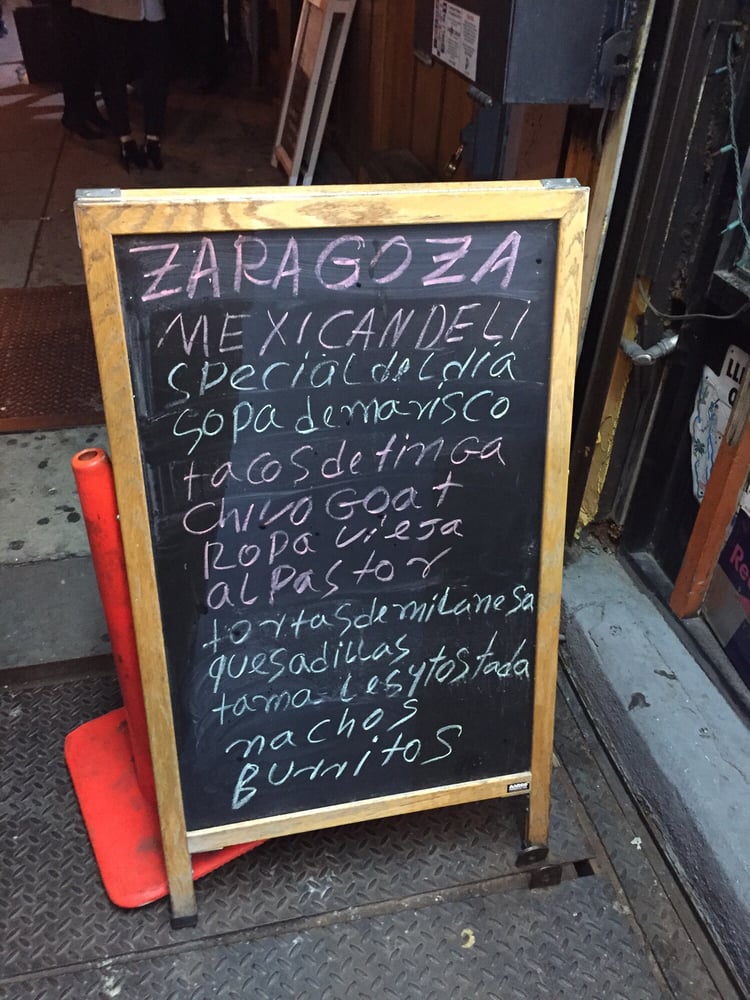 ZARAGOZA
MEXICAN DELI
special del día
sopa de marisco
tacos de tinga
chivo GOAt
Ropa vieja
al Pastor
tortas de milanesa
quesadillas
tamales y tostada
nachos
Burritos